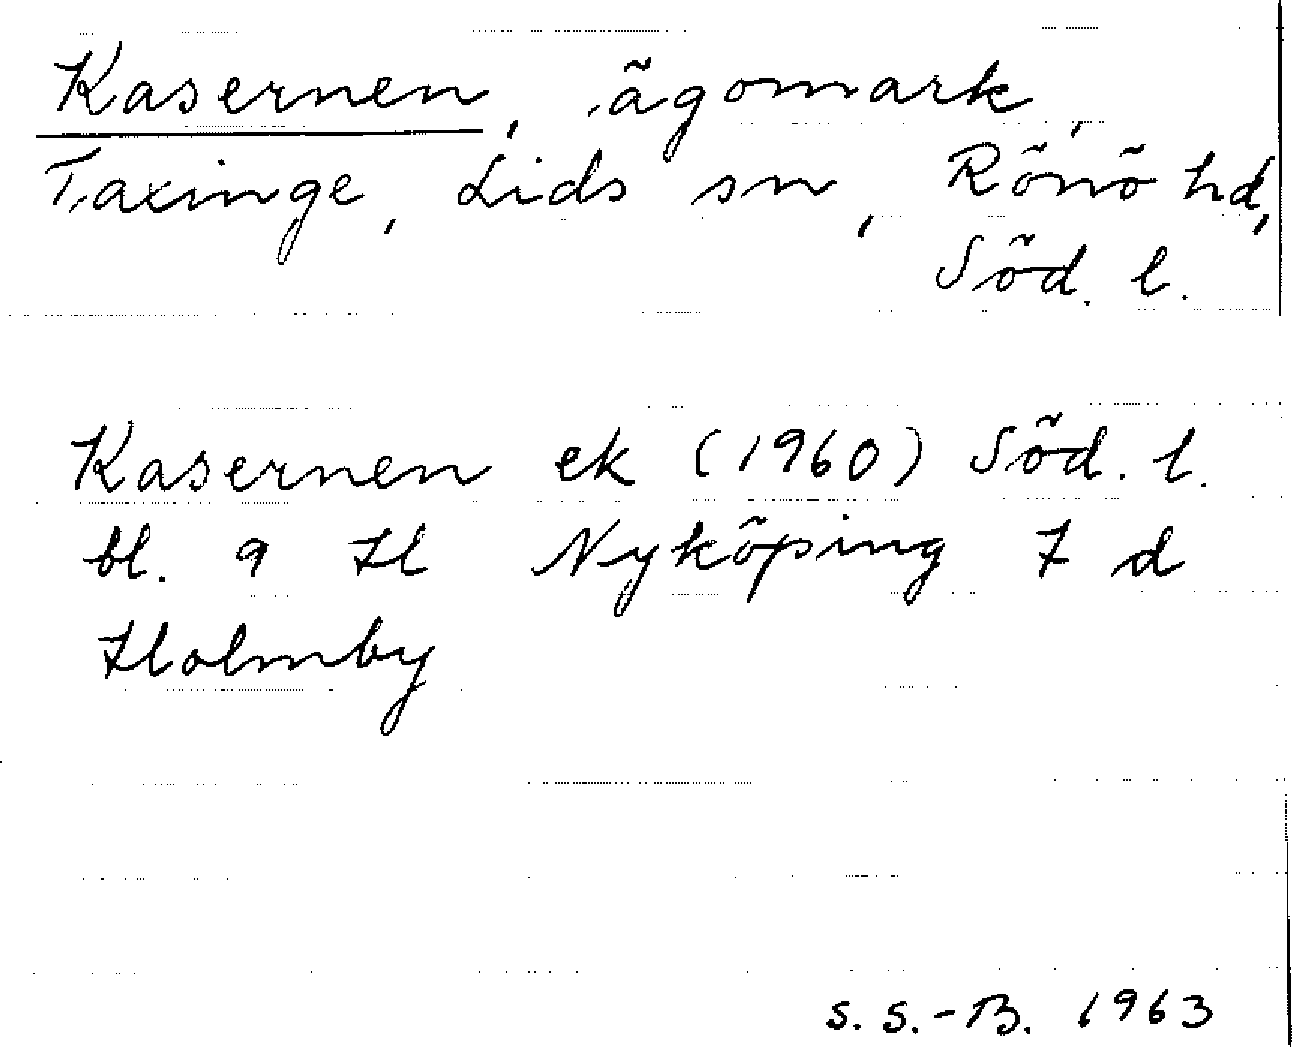 Kasernen, ägomark,
Taxinge, Lids sn, Rönö hd,
Söd. l.
Kasernen ek (1960) Söd. l.
bl. 9 H Nyköping 7 d
Holmby
S. S.-B. 1963